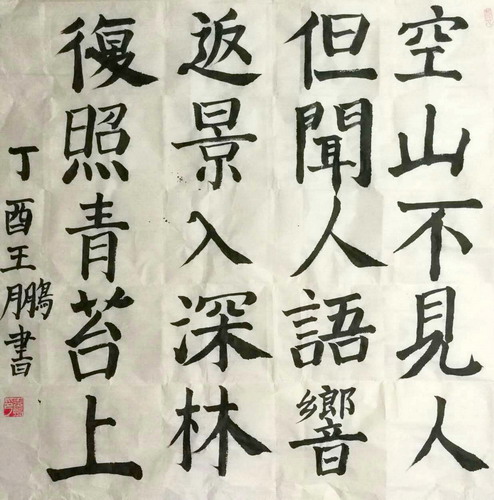 空山不見人
但聞人語響
返景入深林
復照青苔上
丁酉王鵬書